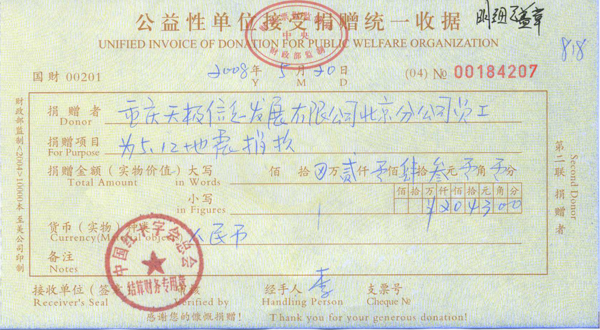 公益性单位接受捐赠统一收据
UNIFIED INVOICE OF DONATION FOR PUBLIC WELFARE ORGANIZATION
中央
财政部监制
818
国财 00201
2008年 5月 20日
Y M D
(04) № 00184207
捐赠者 重庆天极信息发展有限公司北京分公司员工
Donor
捐赠项目 为5.12地震捐款
For Purpose
捐赠金额(实物价值)大写 佰 拾 万贰仟零佰肆拾叁元零角零分
Total Amount in Words
佰拾万仟佰拾元角分
小写 ¥204300
in Figures
货币(实物)种类 人民币
Currency(Material objects)
备注
Notes
中国红十字会总会
结算财务专用章
接收单位(签章)
经手人 李 支票号
Receiver's Seal Verified by Handling Person Cheque №
感谢您的慷慨捐赠! Thank you for your generous donation!
财政部监制<2004>10000本 至美公司印制
第二联 捐赠者
Second Donor